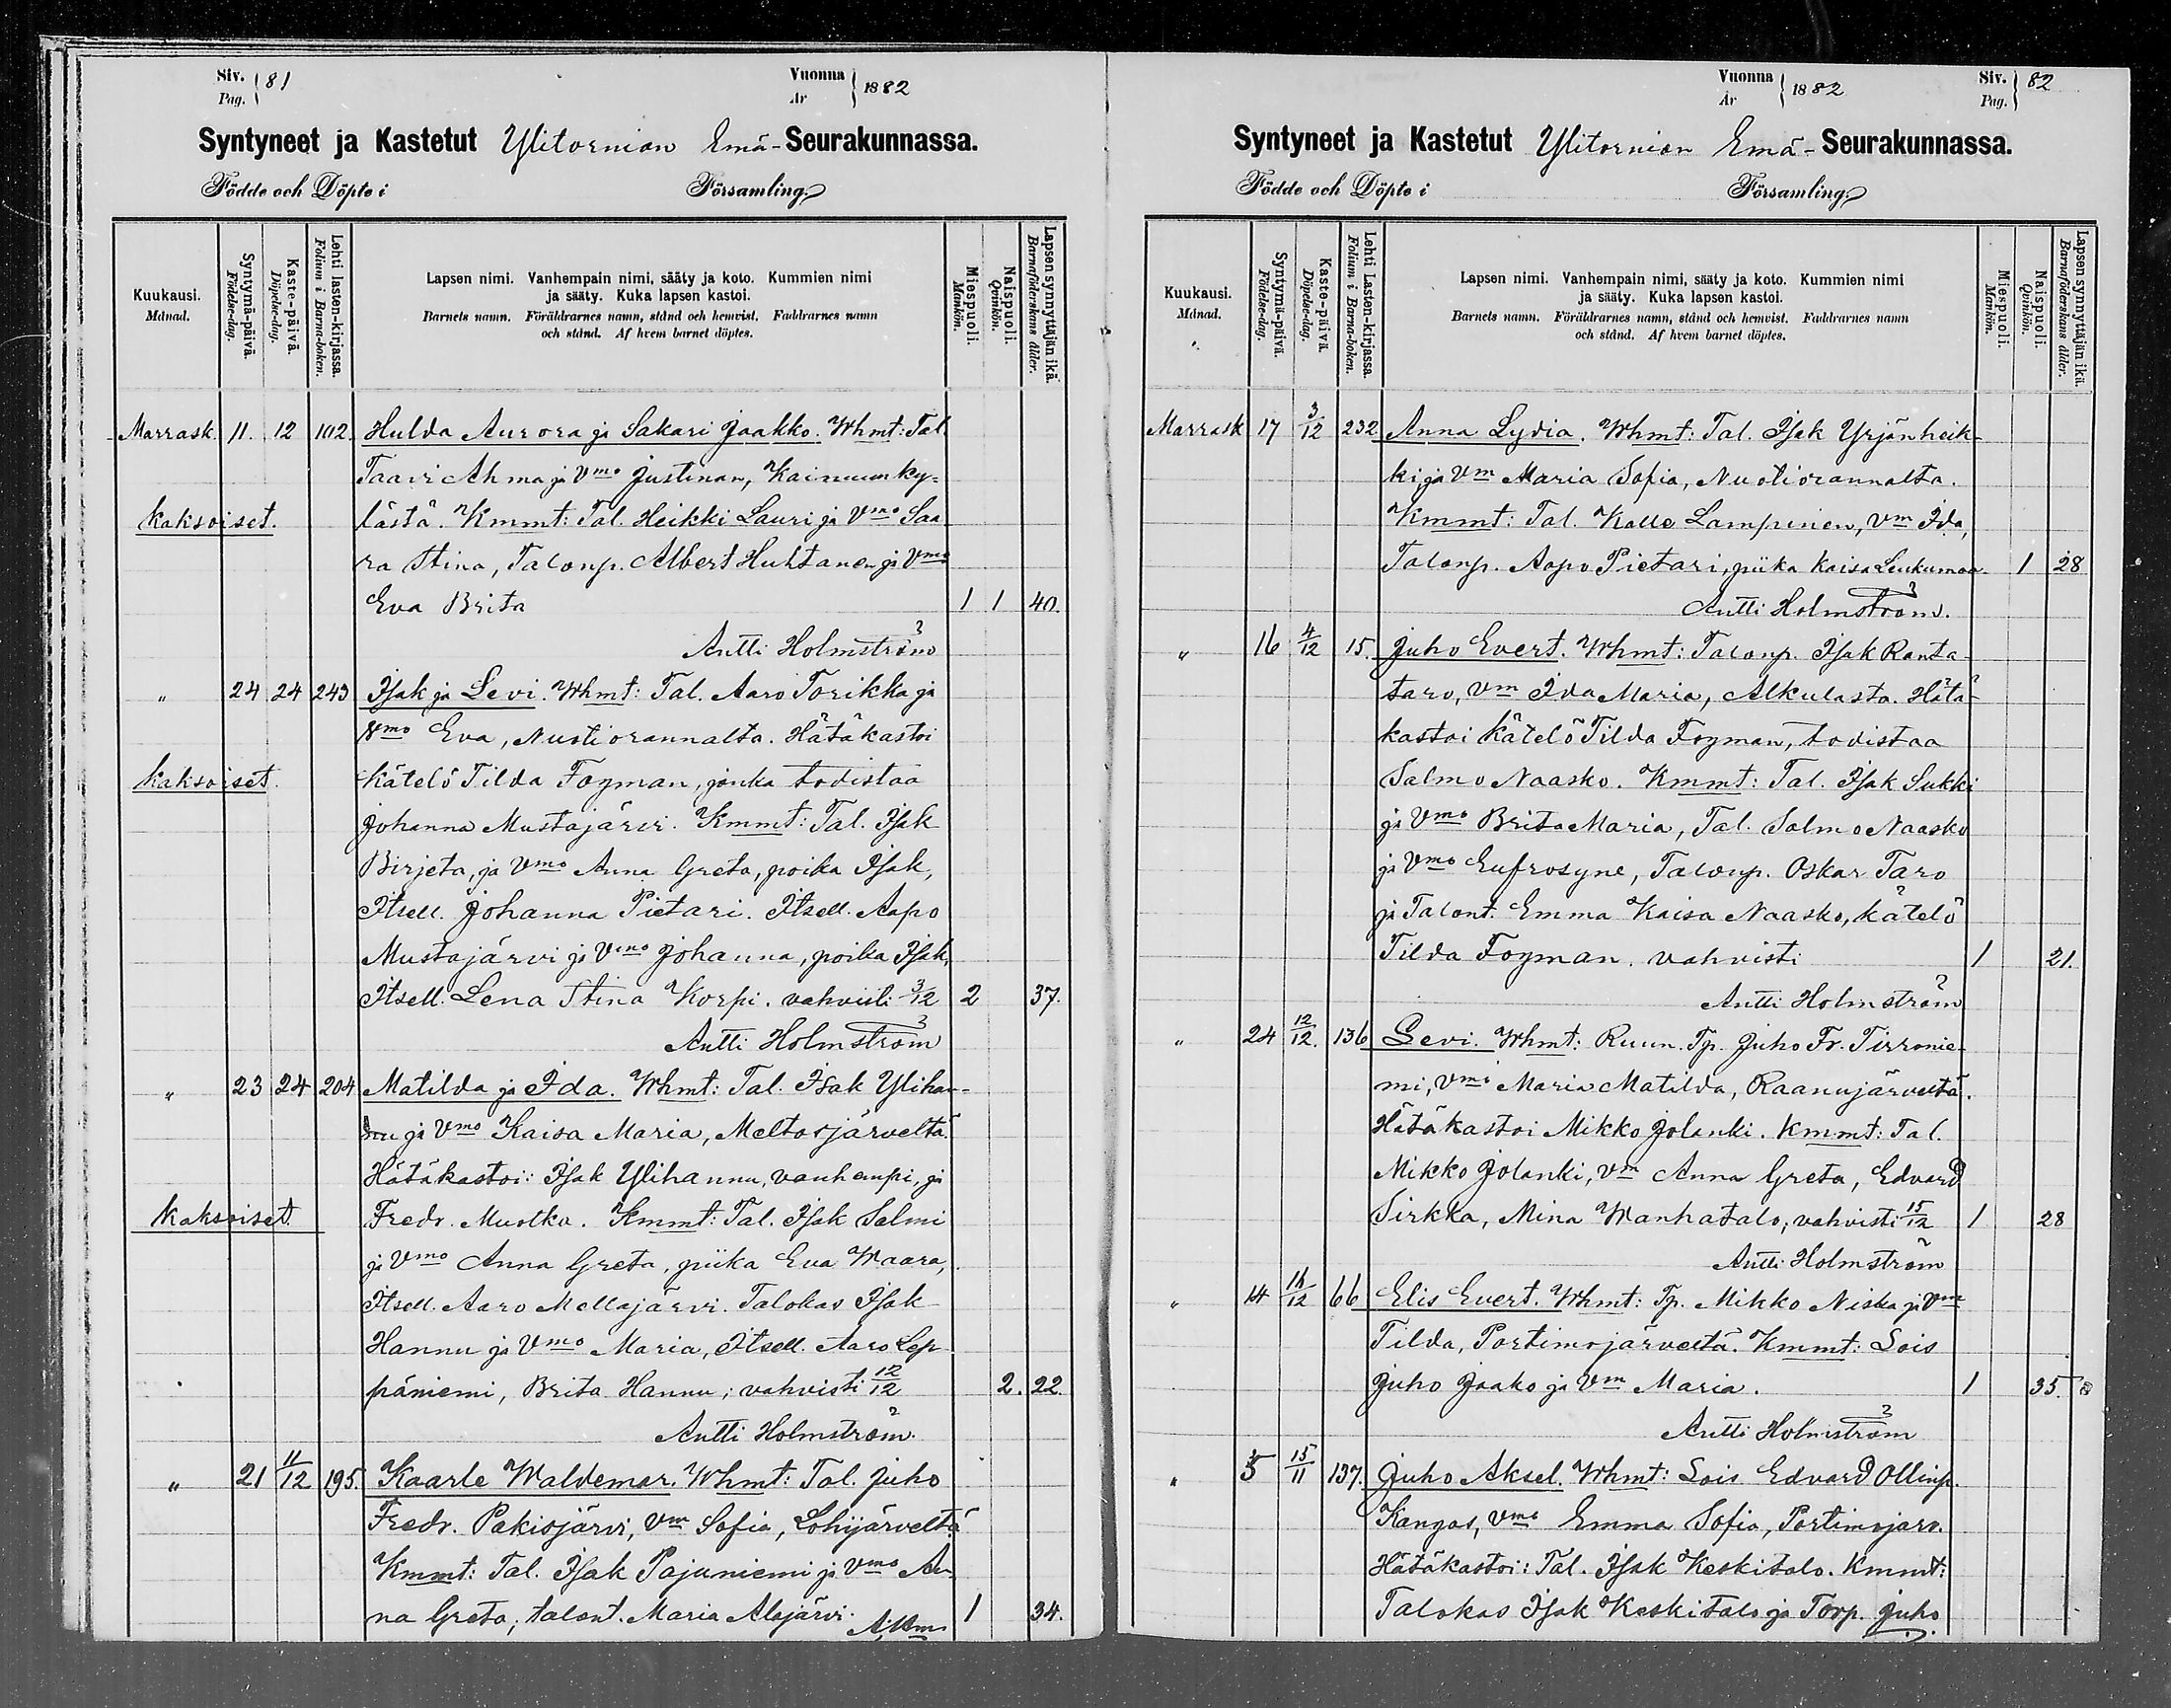 Siv. 81
Pag.
Vuonna 1882
År
Syntyneet ja Kastetut Ylitornion Emä-Seurakunnassa.
Födde och Döpte i Församling.
Kuukausi.
Månad.
Syntymä-päivä.
Födelse-dag.
Kaste-päivä.
Döpelse-dag.
Lehti lasten-kirjassa.
Folium i Barna-boken.
Lapsen nimi. Vanhempain nimi, sääty ja koto. Kummien nimi
ja sääty. Kuka lapsen kastoi.
Barnets namn. Föräldrarnes namn, stånd och hemvist. Faddrarnes namn
och stånd. Af hvem barnet döptes.
Miespuoli.
Mankön.
Naispuoli.
Qvinkön.
Lapsen synnyttäjän ikä.
Barnaföderskans ålder.
Marrask. 11. 12 102. Hulda Aurora ja Sakari Jaakko. Whmt: Tal.
Taavi Ahma ja Vmo Justinan, Kainuunky-
kaksoiset. lästä. Kmmt: Tal. Heikki Lauri ja Vmo Saa
ra Stina, Talonp. Albert Huhtanen ja Vmo
Eva Brita 1 1 40.
Antti Holmström
" 24 24 243 Isak ja Levi. Whmt: Tal. Aaro Torikka ja
Vmo Eva, Nuotiorannalta. Hätäkastoi
kaksoiset. kätelö Tilda Fogman, jonka todistaa
Johanna Mustajärvi. Kmmt: Tal. Isak
Birjeta, ja Vmo Anna Greta, poika Isak,
Itsell. Johanna Pietari. Itsell. Aapo
Mustajärvi ja Vmo Johanna, poika Isak,
Itsell. Lena Stina Korpi. vahvisti 3/12 2 37.
Antti Holmström
" 23 24 204 Matilda ja Ida. Whmt: Tal. Isak Ylihan-
nu ja Vmo Kaisa Maria, Meltosjärveltä.
Hätäkastoi: Isak Ylihannu, vanhempi, ja
Kaksoiset. Fredr. Muotka. Kmmt: Tal. Isak Salmi
ja Vmo Anna Greta, piika Eva Waara,
Itsell. Aaro Mellajärvi. Talokas Isak
Hannu ja Vmo Maria, Itsell. Aaro Lep
päniemi, Brita Hannu; vahvisti 12/12 2. 22.
Antti Holmström.
" 21 11/12 195. Kaarle Waldemar. Whmt: Tal. Juho
Fredr. Pakisjärvi, Vm Sofia, Lohijärveltä
Kmmt: Tal. Isak Pajuniemi ja Vmo An
na Greta, talont. Maria Alajärvi. 1 34.
Vuonna 1882
År
Siv. 82
Pag.
Syntyneet ja Kastetut Ylitornion Emä-Seurakunnassa.
Födde och Döpte i Församling.
Kuukausi.
Månad.
Syntymä-päivä.
Födelse-dag.
Kaste-päivä.
Döpelse-dag.
Lehti Lasten-kirjassa.
Folium i Barna-boken.
Lapsen nimi. Vanhempain nimi, sääty ja koto. Kummien nimi
ja sääty. Kuka lapsen kastoi.
Barnets namn. Föräldrarnes namn, stånd och hemvist. Faddrarnes namn
och stånd. Af hvem barnet döptes.
Miespuoli.
Mankön.
Naispuoli.
Qvinkön.
Lapsen synnyttäjän ikä.
Barnaföderskans ålder.
Marrask 17 3/12 232 Anna Lydia. Whmt: Tal. Isak Yrjänheik-
ki, ja Vm Maria Sofia, Nuotiorannalta.
Kmmt: Tal. Kalle Lampinen, Vm Ida,
Talonp. Aapo Pietari, piika Kaisa Leukumaa. 1 28
Antti Holmström.
" 16 4/12 15. Juho Evert. Whmt: Talonp. Isak Ranta-
taro, Vm Ida Maria, Alkulasta. Hätä-
kastoi kätelö Tilda Fogman, todistaa
Salmo Naasko. Kmmt: Tal. Isak Sukki
ja Vmo Brita Maria, Tal. Salmo Naasko
ja Vmo Eufrosyne, Talonp. Oskar Taro
ja Talont. Emma Kaisa Naasko, kätelö
Tilda Fogman. vahvisti 1 21.
Antti Holmström
" 24 12/12. 136 Levi. Whmt: Ruun. Tp. Juho Fr. Tirronie-
mi, Vmo Maria Matilda, Raanujärveltä.
Hätäkastoi Mikko Jolanki. Kmmt: Tal.
Mikko Jolanki, Vm Anna Greta, Edvard
Sirkka, Mina Wanhatalo; vahvisti 15/12 1 28
Antti Holmström
" 14 16/12 66 Elis Evert. Whmt: Tp. Mikko Niska ja Vm
Tilda, Portimojärveltä. Kmmt: Lois
Juho Jaako ja Vm Maria. 1 35.
Antti Holmström
" 5 15/11 137. Juho Aksel. Whmt: Lois Edvard Ollinp.
Kangas, Vmo Emma Sofia, Portimojarv.
Hätäkastoi: Tal. Isak Keskitalo. Kmmt:
Talokas Isak Keskitalo ja Torp. Juho